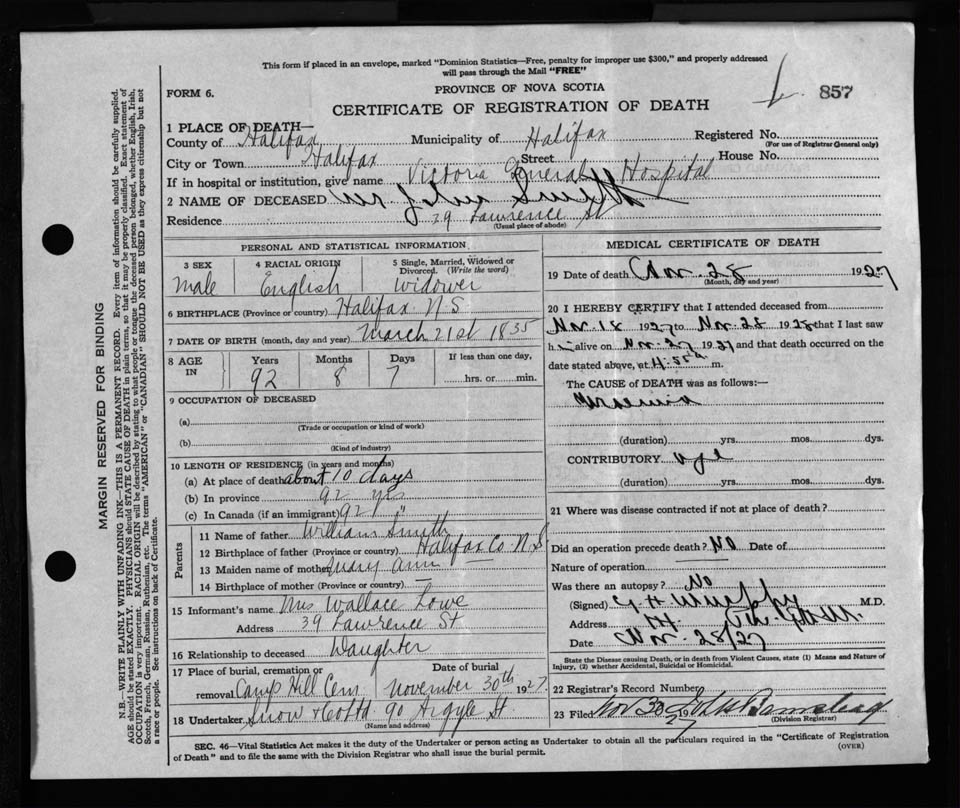 This form if placed in an envelope, marked "Dominion Statistics—Free, penalty for improper use $300," and properly addressed
will pass through the Mail "FREE"
FORM 6.
PROVINCE OF NOVA SCOTIA
857
CERTIFICATE OF REGISTRATION OF DEATH
1 PLACE OF DEATH—
County of Halifax Municipality of Halifax Registered No.
(For use of Registrar General only)
City or Town Halifax Street House No.
If in hospital or institution, give name Victoria General Hospital
2 NAME OF DECEASED Mr John Smith
Residence 39 Lawrence St
(Usual place of abode)
PERSONAL AND STATISTICAL INFORMATION
3 SEX
Male
4 RACIAL ORIGIN
English
5 Single, Married, Widowed or
Divorced. (Write the word)
Widower
6 BIRTHPLACE (Province or country) Halifax N S
7 DATE OF BIRTH (month, day and year) March 21st 1835
8 AGE IN
Years Months Days If less than one day,
92 8 7 hrs. or min.
9 OCCUPATION OF DECEASED
(a)
(Trade or occupation or kind of work)
(b)
(Kind of industry)
10 LENGTH OF RESIDENCE (in years and months)
(a) At place of death about 10 days
(b) In province 92 yrs
(c) In Canada (if an immigrant) 92 "
Parents
11 Name of father William Smith
12 Birthplace of father (Province or country) Halifax Co N.S
13 Maiden name of mother Mary Ann
14 Birthplace of mother (Province or country) —
15 Informant's name Mrs Wallace Lowe
Address 39 Lawrence St
16 Relationship to deceased Daughter
17 Place of burial, cremation or Date of burial
removal Camp Hill Cem November 30th 1927
18 Undertaker Snow & Co Ltd 90 Argyle St.
(Name and address)
MEDICAL CERTIFICATE OF DEATH
19 Date of death Nov. 28 1927
(Month, day and year)
20 I HEREBY CERTIFY that I attended deceased from
Nov 18 1927 to Nov 28 1928 that I last saw
h alive on Nov 27 1927 and that death occurred on the
date stated above, at 4.55 a m.
The CAUSE of DEATH was as follows:—
Uraemia
(duration) yrs. mos. dys.
CONTRIBUTORY age
(duration) yrs. mos. dys.
21 Where was disease contracted if not at place of death?
Did an operation precede death? No Date of
Nature of operation
Was there an autopsy? No
(Signed) G H Murphy M.D.
Address
Date Nov. 28/27
State the Disease causing Death, or in death from Violent Causes, state (1) Means and Nature of
Injury, (2) whether Accidental, Suicidal or Homicidal.
22 Registrar's Record Number
23 Filed Nov 30 1927
(Division Registrar)
SEC. 46—Vital Statistics Act makes it the duty of the Undertaker or person acting as Undertaker to obtain all the particulars required in the "Certificate of Registration
of Death" and to file the same with the Division Registrar who shall issue the burial permit. (OVER)
MARGIN RESERVED FOR BINDING
N.B.—WRITE PLAINLY WITH UNFADING INK—THIS IS A PERMANENT RECORD. Every item of information should be carefully supplied.
AGE should be stated EXACTLY. PHYSICIANS should STATE CAUSE OF DEATH in plain terms, so that it may be properly classified. Exact statement of
OCCUPATION is very important. RACIAL ORIGIN will be described by stating to what people or tongue the deceased person belonged, whether English, Irish,
Scotch, French, German, Russian, Ruthenian, etc. The terms "AMERICAN" or "CANADIAN" SHOULD NOT BE USED as they express citizenship but not
a race or people. See instructions on back of Certificate.